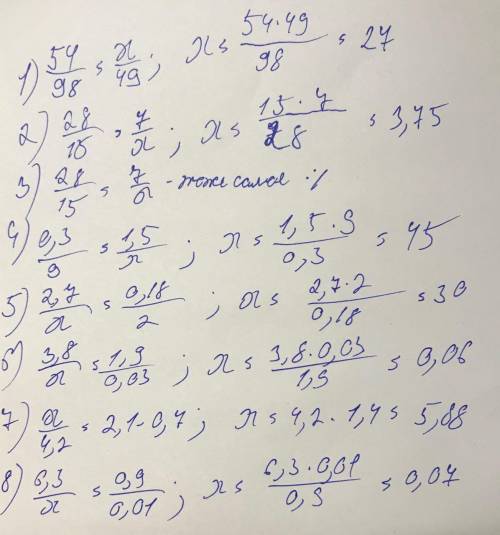 1) 54/98 = x/49; x = 54·49/98 = 27
2) 28/15 = 7/x; x = 15·7/28 = 3,75
3) 28/15 = 7/x - тоже самое :/
4) 0,3/9 = 1,5/x; x = 1,5·9/0,3 = 45
5) 2,7/x = 0,18/2; x = 2,7·2/0,18 = 30
6) 3,8/x = 1,9/0,03; x = 3,8·0,03/1,9 = 0,06
7) x/4,2 = 2,1-0,7; x = 4,2·1,4 = 5,88
8) 6,3/x = 0,9/0,01; x = 6,3·0,01/0,9 = 0,07